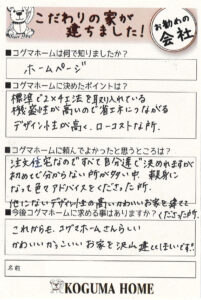 こだわりの家が
建ちました!
お勧めの
会社
■コグマホームは何で知りましたか?
ホームページ
■コグマホームに決めたポイントは?
標準で2×4工法を取り入れている
機密性が高いので省エネにつながる
デザイン性が高く、ローコストな所。
■コグマホームに頼んでよかったと思うところは?
注文住宅なのですべて自分達で決めれますが
初めてで分からない所が多い中 親身に
なって色々アドバイスをくださった所。
他にないデザイン性の高いかわいいお家を建てて
くださった所。
■今後コグマホームに求める事はありますか?
これからも、コグマホームさんらしい
かわいい かっこいい お家を沢山 建ててほしいです!
名前
KOGUMA HOME